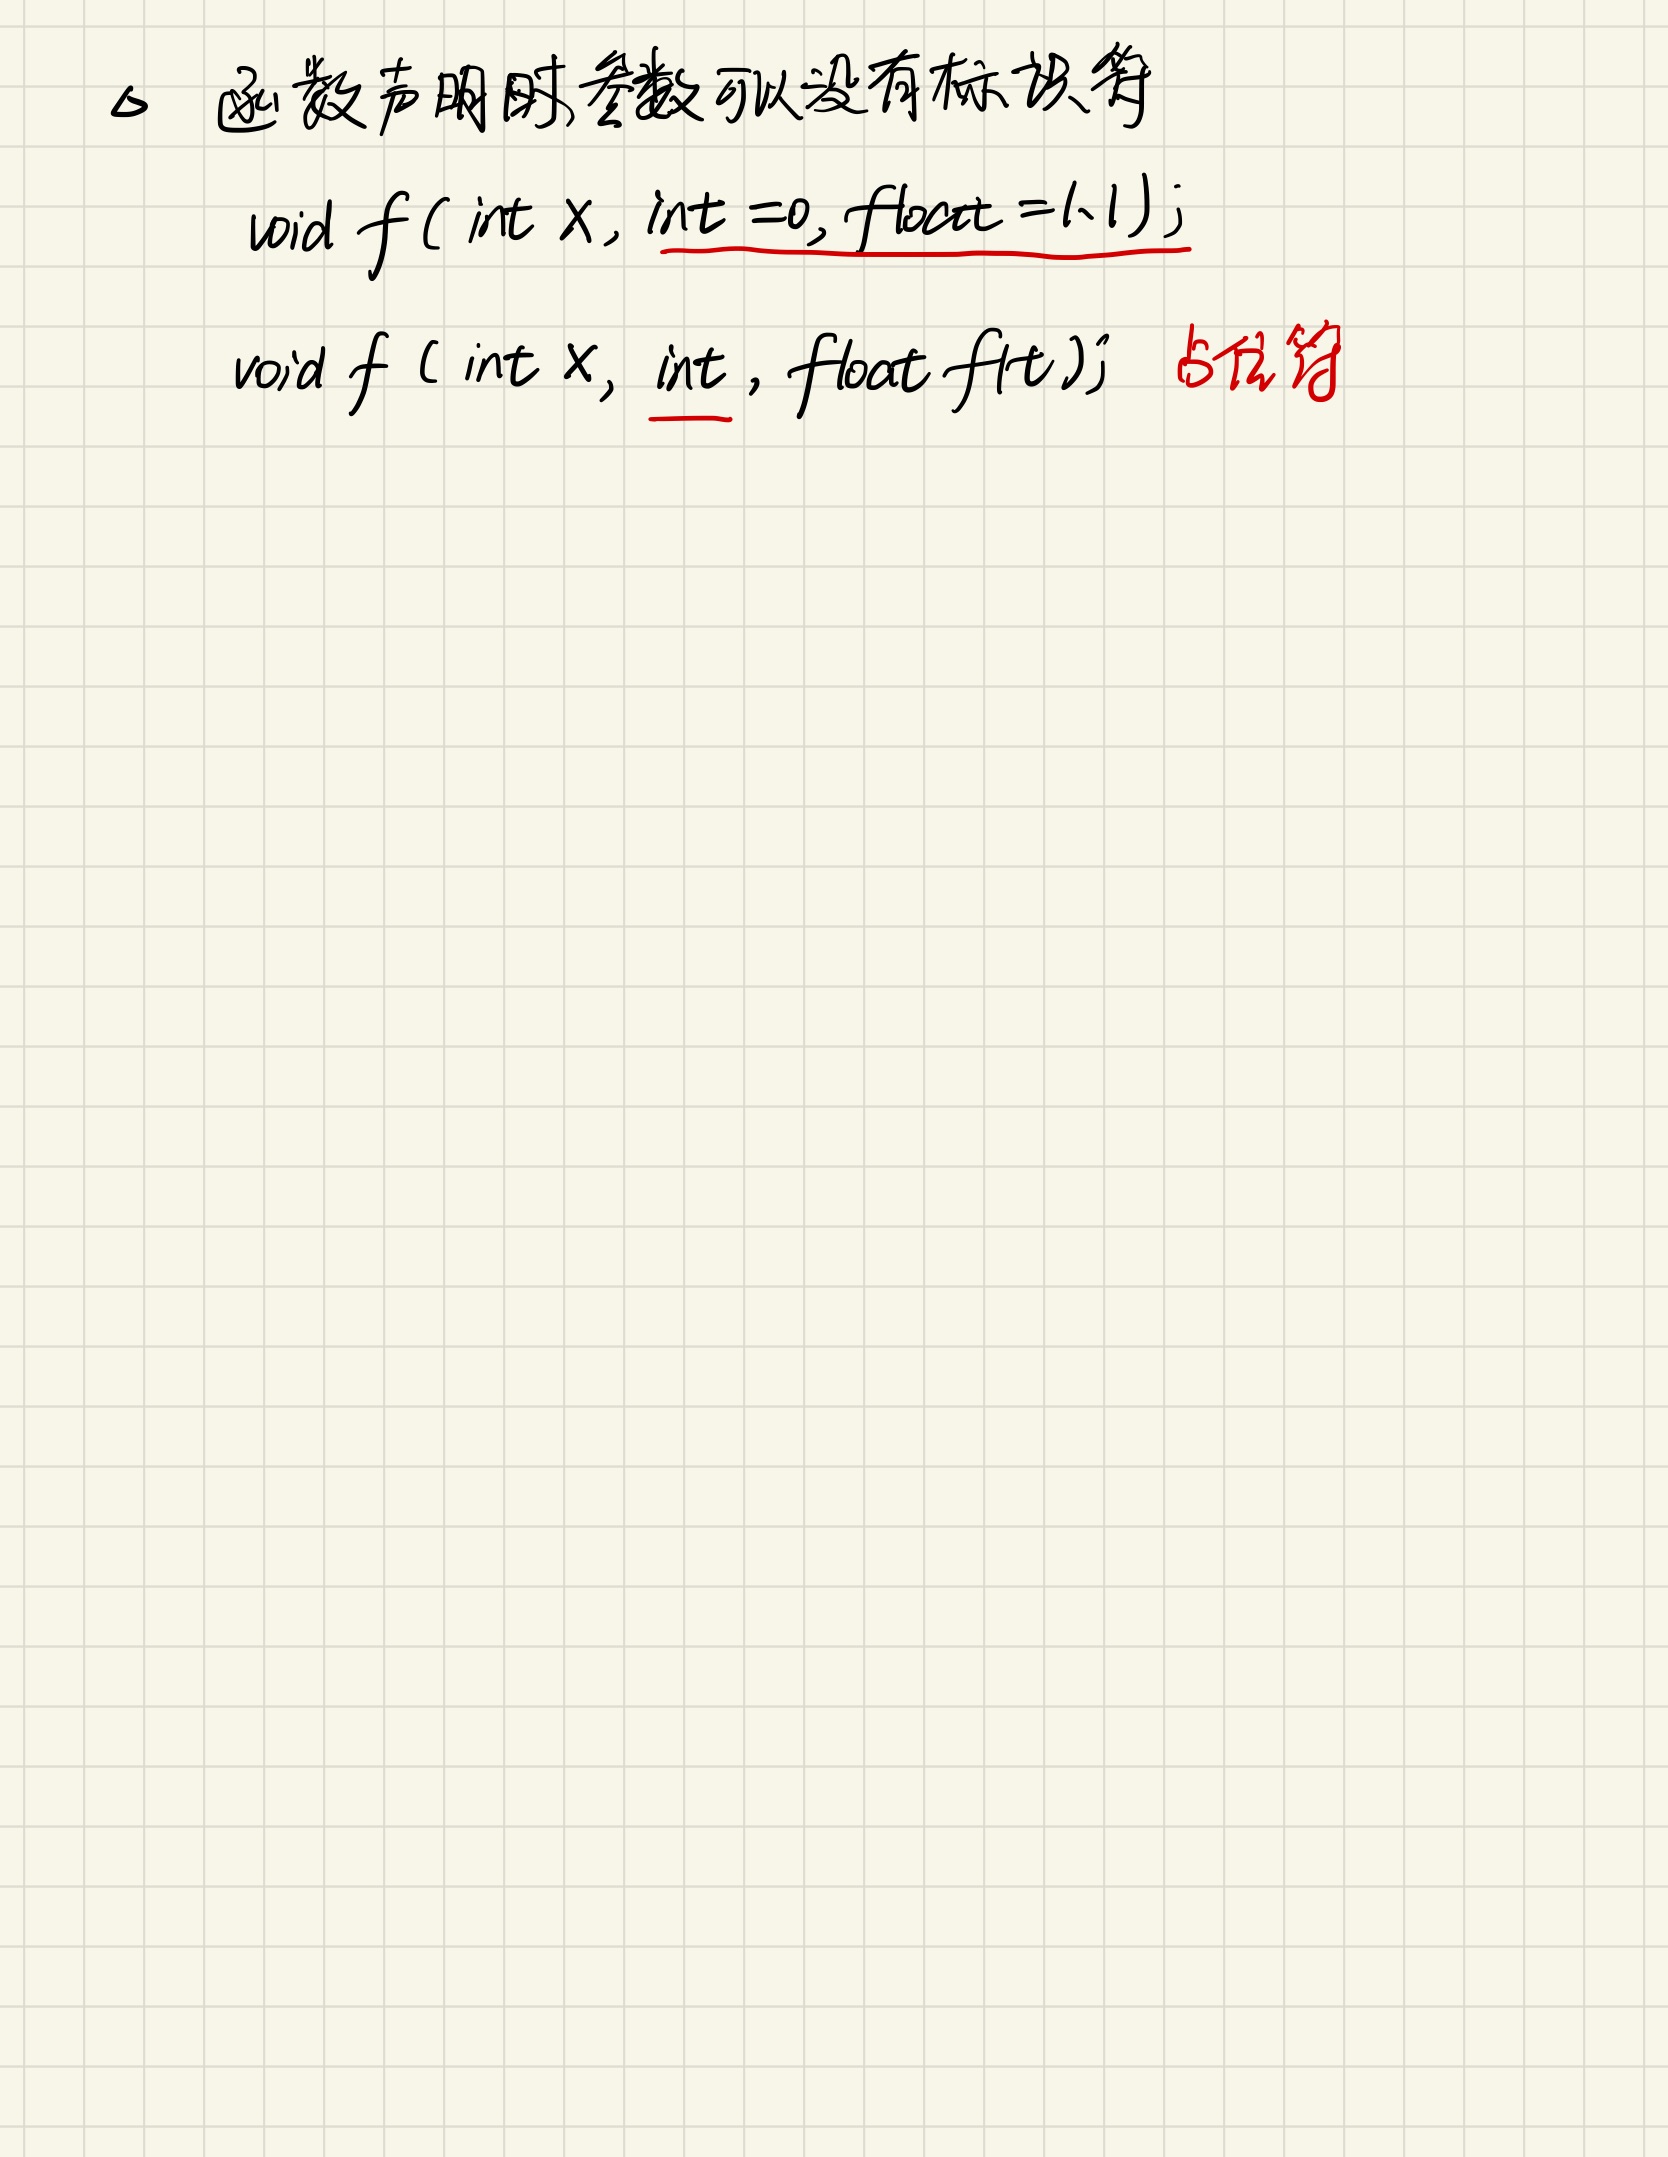 函数声明时,参数可以没有标识符
void f( int x, int =0, float =1.1);
void f ( int x, int , float flt ); 占位符